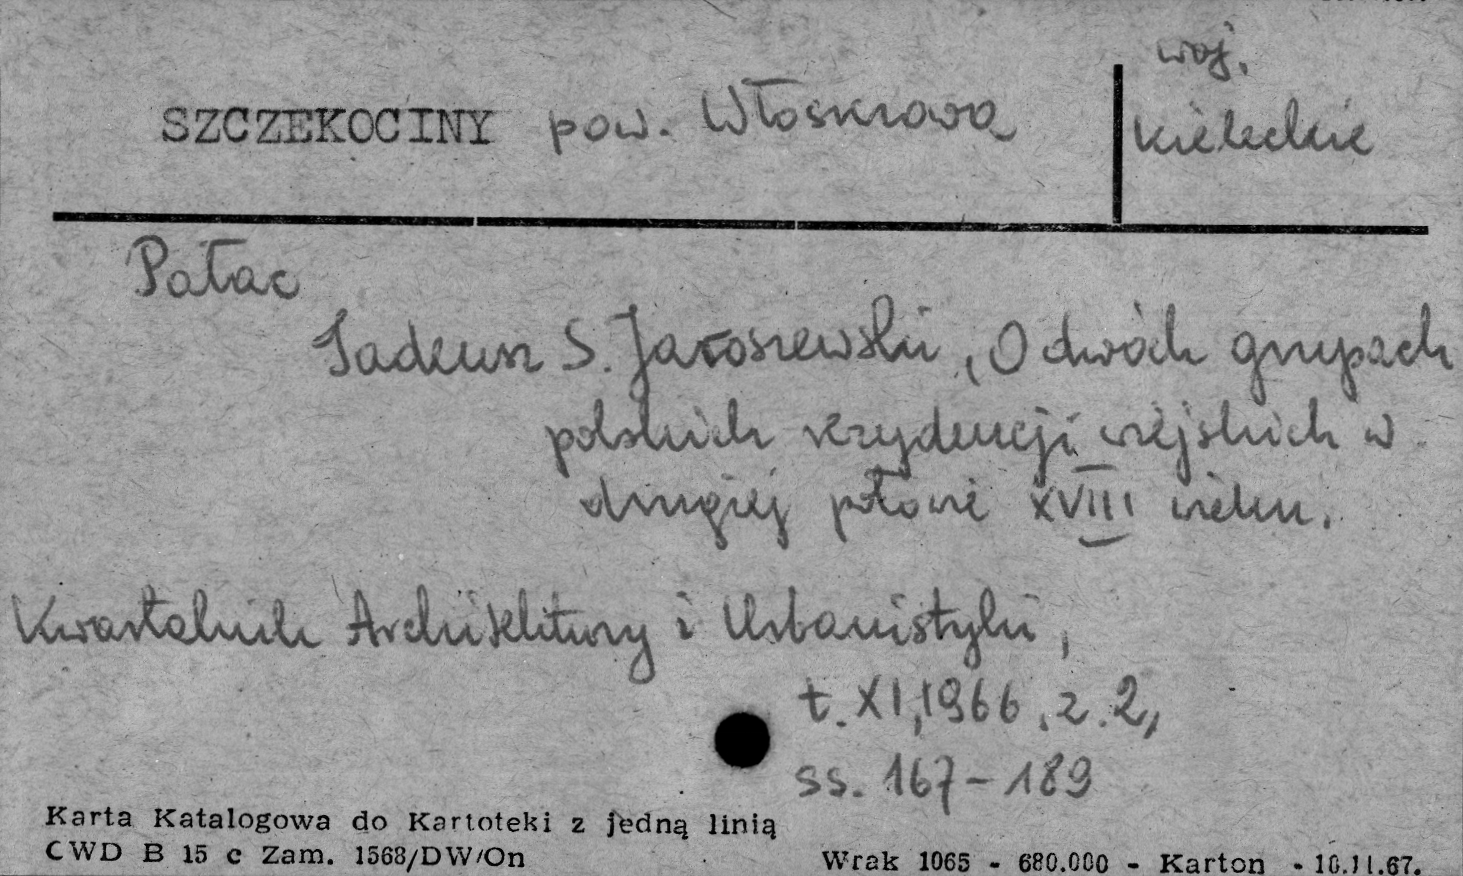 woj.
SZCZEKOCINY pow. Włoszczowa kieleckie
Pałac
Tadeusz S. Jaroszewski, O dwóch grupach
polskich rezydencji wiejskich w
drugiej połowie XVIII wieku.
Kwartalnik Architektury i Urbanistyki,
t. XI, 1966, z. 2,
ss. 167-189
Karta Katalogowa do Kartoteki z jedną linią
CWD B 15 c Zam. 1568/DW/On
Wrak 1065 - 680.000 - Karton - 10.11.67.